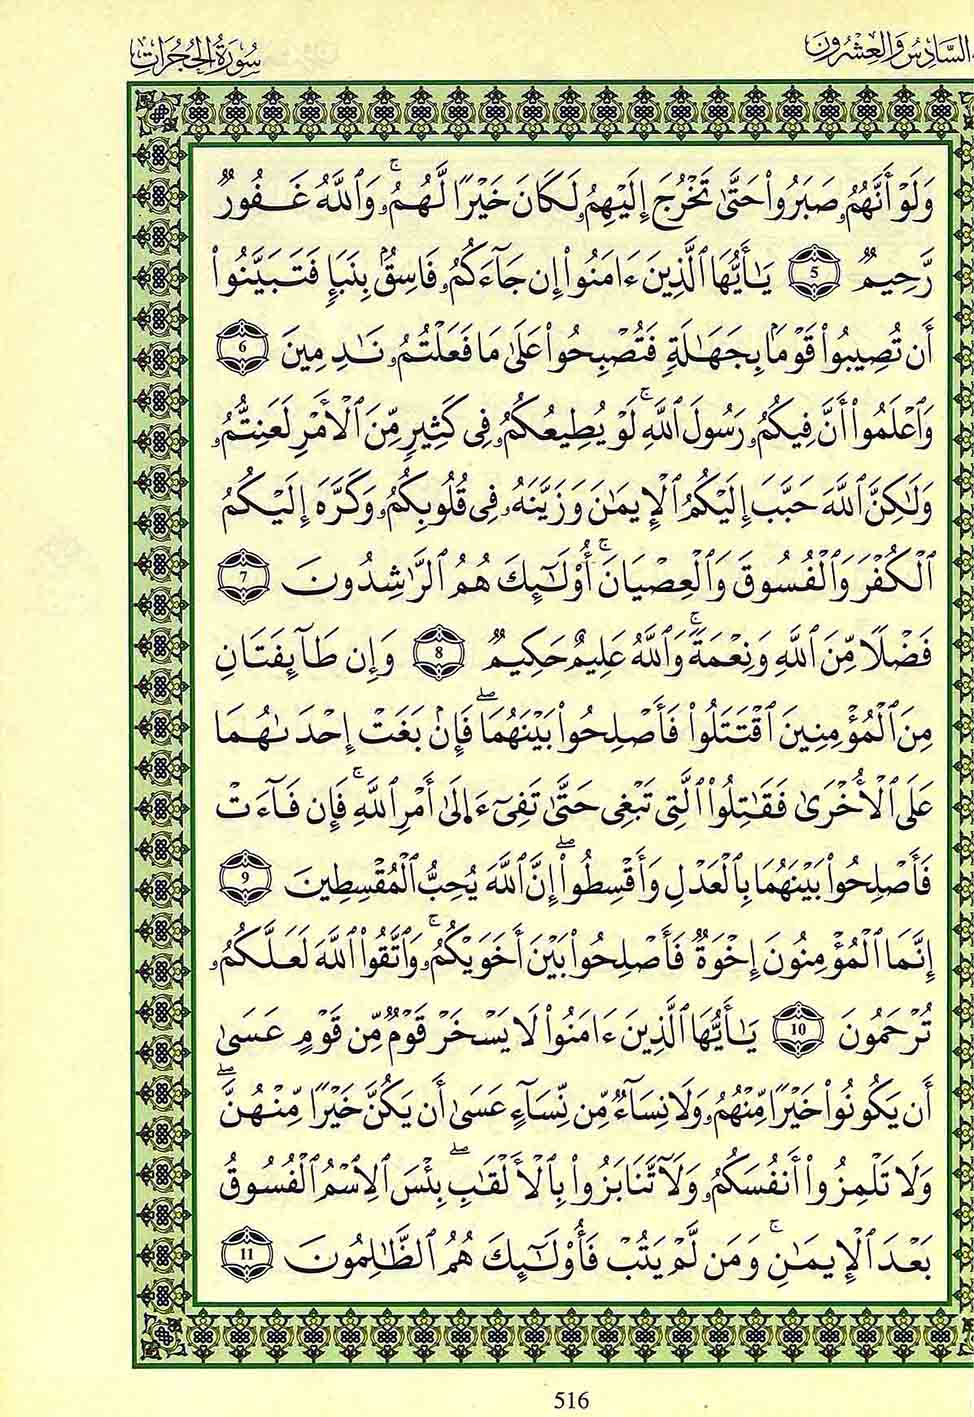 السَّادِسُ وَالْعِشْرُونَ
سُورَةُ الْحُجُرَاتِ
وَلَوْ أَنَّهُمُۥ صَبَرُواْ حَتَّىٰ تَخْرُجَ إِلَيْهِمُۥ لَكَانَ خَيْرًا لَّهُمُۥۚ وَٱللَّهُ غَفُورٌ
رَّحِيمٌ 5 يَٰأَيُّهَا ٱلَّذِينَ ءَامَنُواْ إِن جَآءَكُمُۥ فَاسِقُۢ بِنَبَإٍ فَتَبَيَّنُواْ
أَن تُصِيبُواْ قَوْمَۢا بِجَهَٰلَةٍ فَتُصْبِحُواْ عَلَىٰ مَا فَعَلْتُمُۥ نَٰدِمِينَ 6
وَٱعْلَمُواْ أَنَّ فِيكُمُۥ رَسُولَ ٱللَّهِۚ لَوْ يُطِيعُكُمُۥ فِي كَثِيرٍ مِّنَ ٱلْأَمْرِ لَعَنِتُّمُۥ
وَلَٰكِنَّ ٱللَّهَ حَبَّبَ إِلَيْكُمُ ٱلْإِيمَٰنَ وَزَيَّنَهُۥ فِي قُلُوبِكُمُۥ وَكَرَّهَ إِلَيْكُمُ
ٱلْكُفْرَ وَٱلْفُسُوقَ وَٱلْعِصْيَانَۚ أُوْلَٰٓئِكَ هُمُ ٱلرَّٰشِدُونَ 7
فَضْلًا مِّنَ ٱللَّهِ وَنِعْمَةًۚ وَٱللَّهُ عَلِيمٌ حَكِيمٌ 8 وَإِن طَآئِفَتَانِ
مِنَ ٱلْمُؤْمِنِينَ ٱقْتَتَلُواْ فَأَصْلِحُواْ بَيْنَهُمَاۖ فَإِنۢ بَغَتْ إِحْدَىٰهُمَا
عَلَى ٱلْأُخْرَىٰ فَقَٰتِلُواْ ٱلَّتِي تَبْغِي حَتَّىٰ تَفِيٓءَ اِلَىٰ أَمْرِ ٱللَّهِۚ فَإِن فَآءَتْ
فَأَصْلِحُواْ بَيْنَهُمَا بِٱلْعَدْلِ وَأَقْسِطُواْۖ إِنَّ ٱللَّهَ يُحِبُّ ٱلْمُقْسِطِينَ 9
إِنَّمَا ٱلْمُؤْمِنُونَ إِخْوَةٌ فَأَصْلِحُواْ بَيْنَ أَخَوَيْكُمُۥۚ وَٱتَّقُواْ ٱللَّهَ لَعَلَّكُمُۥ
تُرْحَمُونَ 10 يَٰأَيُّهَا ٱلَّذِينَ ءَامَنُواْ لَا يَسْخَرْ قَوْمٌ مِّن قَوْمٍ عَسَىٰ
أَن يَكُونُواْ خَيْرًا مِّنْهُمُۥ وَلَا نِسَآءٌ مِّن نِّسَآءٍ عَسَىٰ أَن يَكُنَّ خَيْرًا مِّنْهُنَّۖ
وَلَا تَلْمِزُواْ أَنفُسَكُمُۥ وَلَآ تَّنَابَزُواْ بِٱلْأَلْقَٰبِۖ بِئْسَ ٱلِٱسْمُ ٱلْفُسُوقُ
بَعْدَ ٱلْإِيمَٰنِۚ وَمَن لَّمْ يَتُبْ فَأُوْلَٰٓئِكَ هُمُ ٱلظَّٰلِمُونَ 11
516